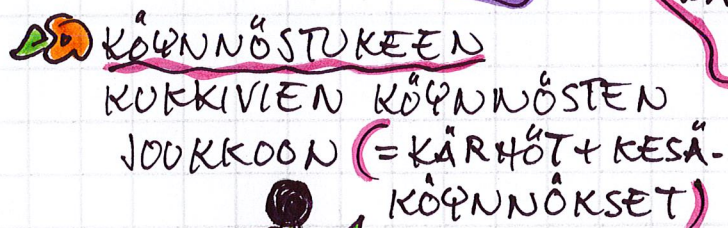 KÖYNNÖSTUKEEN
KUKKIVIEN KÖYNNÖSTEN
JOUKKOON (= KÄRHÖT + KESÄ-
KÖYNNÖKSET)